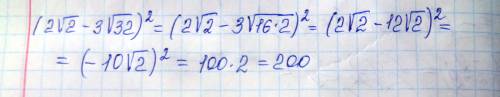 (2√2 - 3√32)² = (2√2 - 3√16·2)² = (2√2 - 12√2)² =
= (-10√2)² = 100·2 = 200